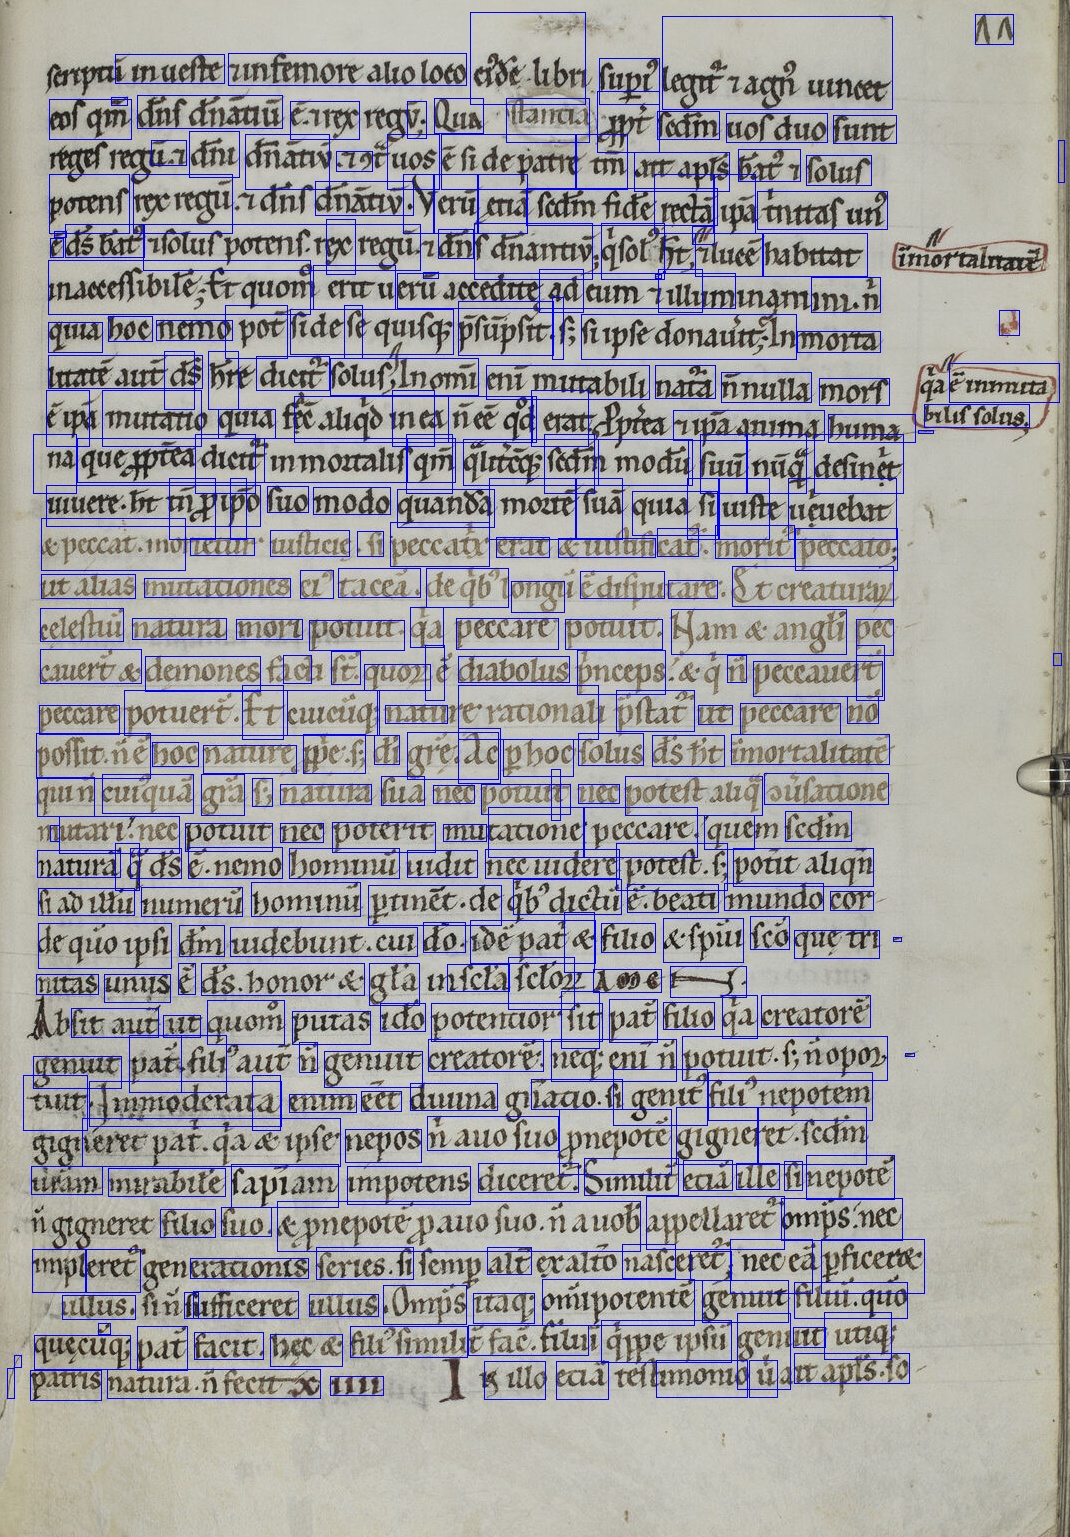 11
scriptū in ueste ⁊ in femore alio loco eiꝰdē libri supiꝰ legit᷑ ⁊ agnꝰ uincet
eos qm̄ dn̄s dn̄atiū ē. ⁊ rex regū. Qua stantia ꝓpt̄ scdm̄ uos duo sunt
reges regū. ⁊ dn̄i dn̄atiū. ⁊ ꝯt̄ uos ē si de patre tm̄ ait apl̄s bat᷑ ⁊ solus
potens rex regū. ⁊ dn̄s dn̄atiū. Verū etiā scdm̄ fidē rectā ipā t̍nitas unꝰ
ē ds̄ bat᷑ ⁊ solus potens. rex regū. ⁊ dn̄s dn̄antiū; q̍ solꝰ ht̄, ⁊ lucē habitat
īmortalitatē
inaccessibilē; Et quom̄ erit uerū accedite ad eum ⁊ illuminamini. n̄
quia hoc nemo pot̄ si de se quisqꝫ p̄sūpsit. sꝫ si ipse donauit̍; Inmorta
litatē aut̄ ds̄ hr̄e dicit᷑ solus, In omi enī mutabili natā n̄ nulla mors
q̄a ē inmuta
bilis solus.
ē ipā mutatio quia fēc̄ aliqd̍ in ea n̄ eē qd̍ erat, Ꝓpt̄ea ⁊ ipā anima huma
na que ꝓpt̄ea dicit᷑ inmortalis qm̄ q̄lit̄cūqꝫ scdm̄ modū suū nūq̄ desinet̍
uiuere. ht̄ tn̄ ꝓ ip̄o suo modo quandā mortē suā quia si iuste uiuebat
& peccat. morietur iusticię. si peccatꝛ̄ erat & iustificat᷑. morit᷑ peccato;
ut alias mutationes eiꝰ taceā. de qb̍ꝰ longū ē disputare. Et creaturaꝝ
celestiū natura mori potuit. q̄a peccare potuit. Nam & angl̄i pec
cauert̄ & demones facti st̄. quoꝝ ē diabolus p̍nceps. & q̍ n̄ peccauert̄
peccare potuert̄. Et cuicūqꝫ nature rationali p̄stat᷑ ut peccare nō
possit. n̄ ē hoc nature ꝓp̄e. sꝫ dī grę̄. Ac p hoc solus ds̄ ht̄ īmortalitatē
qui n̄ cuiꝰquā grā sꝫ natura sua nec potuit nec potest aliq̄ ꝯuͥsatione
mutari. nec potuit nec poterit mutatione peccare. quem scdm̄
naturā q̄ ds̄ ē. nemo hominū uidit nec uidere potest. sꝫ potīt aliqn̄
si ad illū numerū hominū ꝑtinēt. de qb̍ꝰ dictū ē. beati mundo cor
de quo ipsi dm̄ uidebunt. cui dō. idē pat̄ & filio & spūi scō quę tri
nitas unus ē ds̄. honor & glā in scla sclōꝝ AME
Absit aut̄ ut quom̄ putas ido̍ potentior sit pat̄ filio q̄a creatorē
genuit pat̄. filiꝰ aut̄ n̄ genuit creatorē. neqꝫ enī n̄ potuit. sꝫ n̄ opor
tuit. Immoderata enim eēt diuina gn̄atio. si genitꝰ filiꝰ nepotem
gigneret pat̄. q̄a & ipse nepos n̄ auo suo ꝓnepotē gigneret. scdm̄
urām mirabilē sapiam impotens diceret᷑. Similit̄ etiā ille si nepotē
n̄ gigneret filio suo. & ꝓnepotē ꝓauo suo. n̄ a uob̄ appellaret᷑ omps̄. nec
impleret᷑ generationis series. si semp alt̄ ex alt̍o nasceret᷑; nec eā ꝑficeret
ullus. si n̄ sufficeret ullus. Omps̄ itaqꝫ omīpotentē genuit filiū. quo
quęcūqꝫ pat̄ facit. hęc & filiꝰ similit̄ fac̄. filiū q̍ppe ipsiꝰ genuit utiqꝫ
patris natura. n̄ fecit X IIII In illo etiā testimonio ū ait apl̄s. so